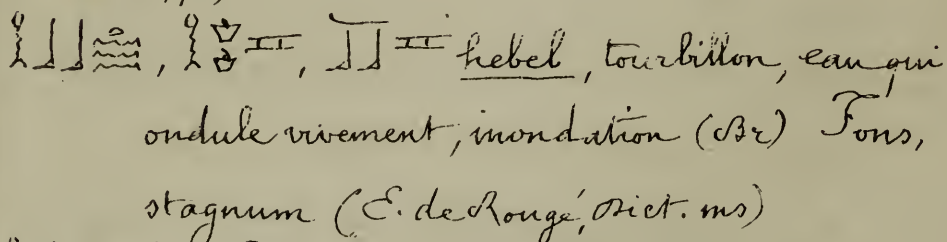 𓎛𓃀𓃀𓈗, hebel, tourbillon, eau qui
ondule vivement, inondation (Br) Fons,
stagnum (E. de Rougé, Dict. ms)